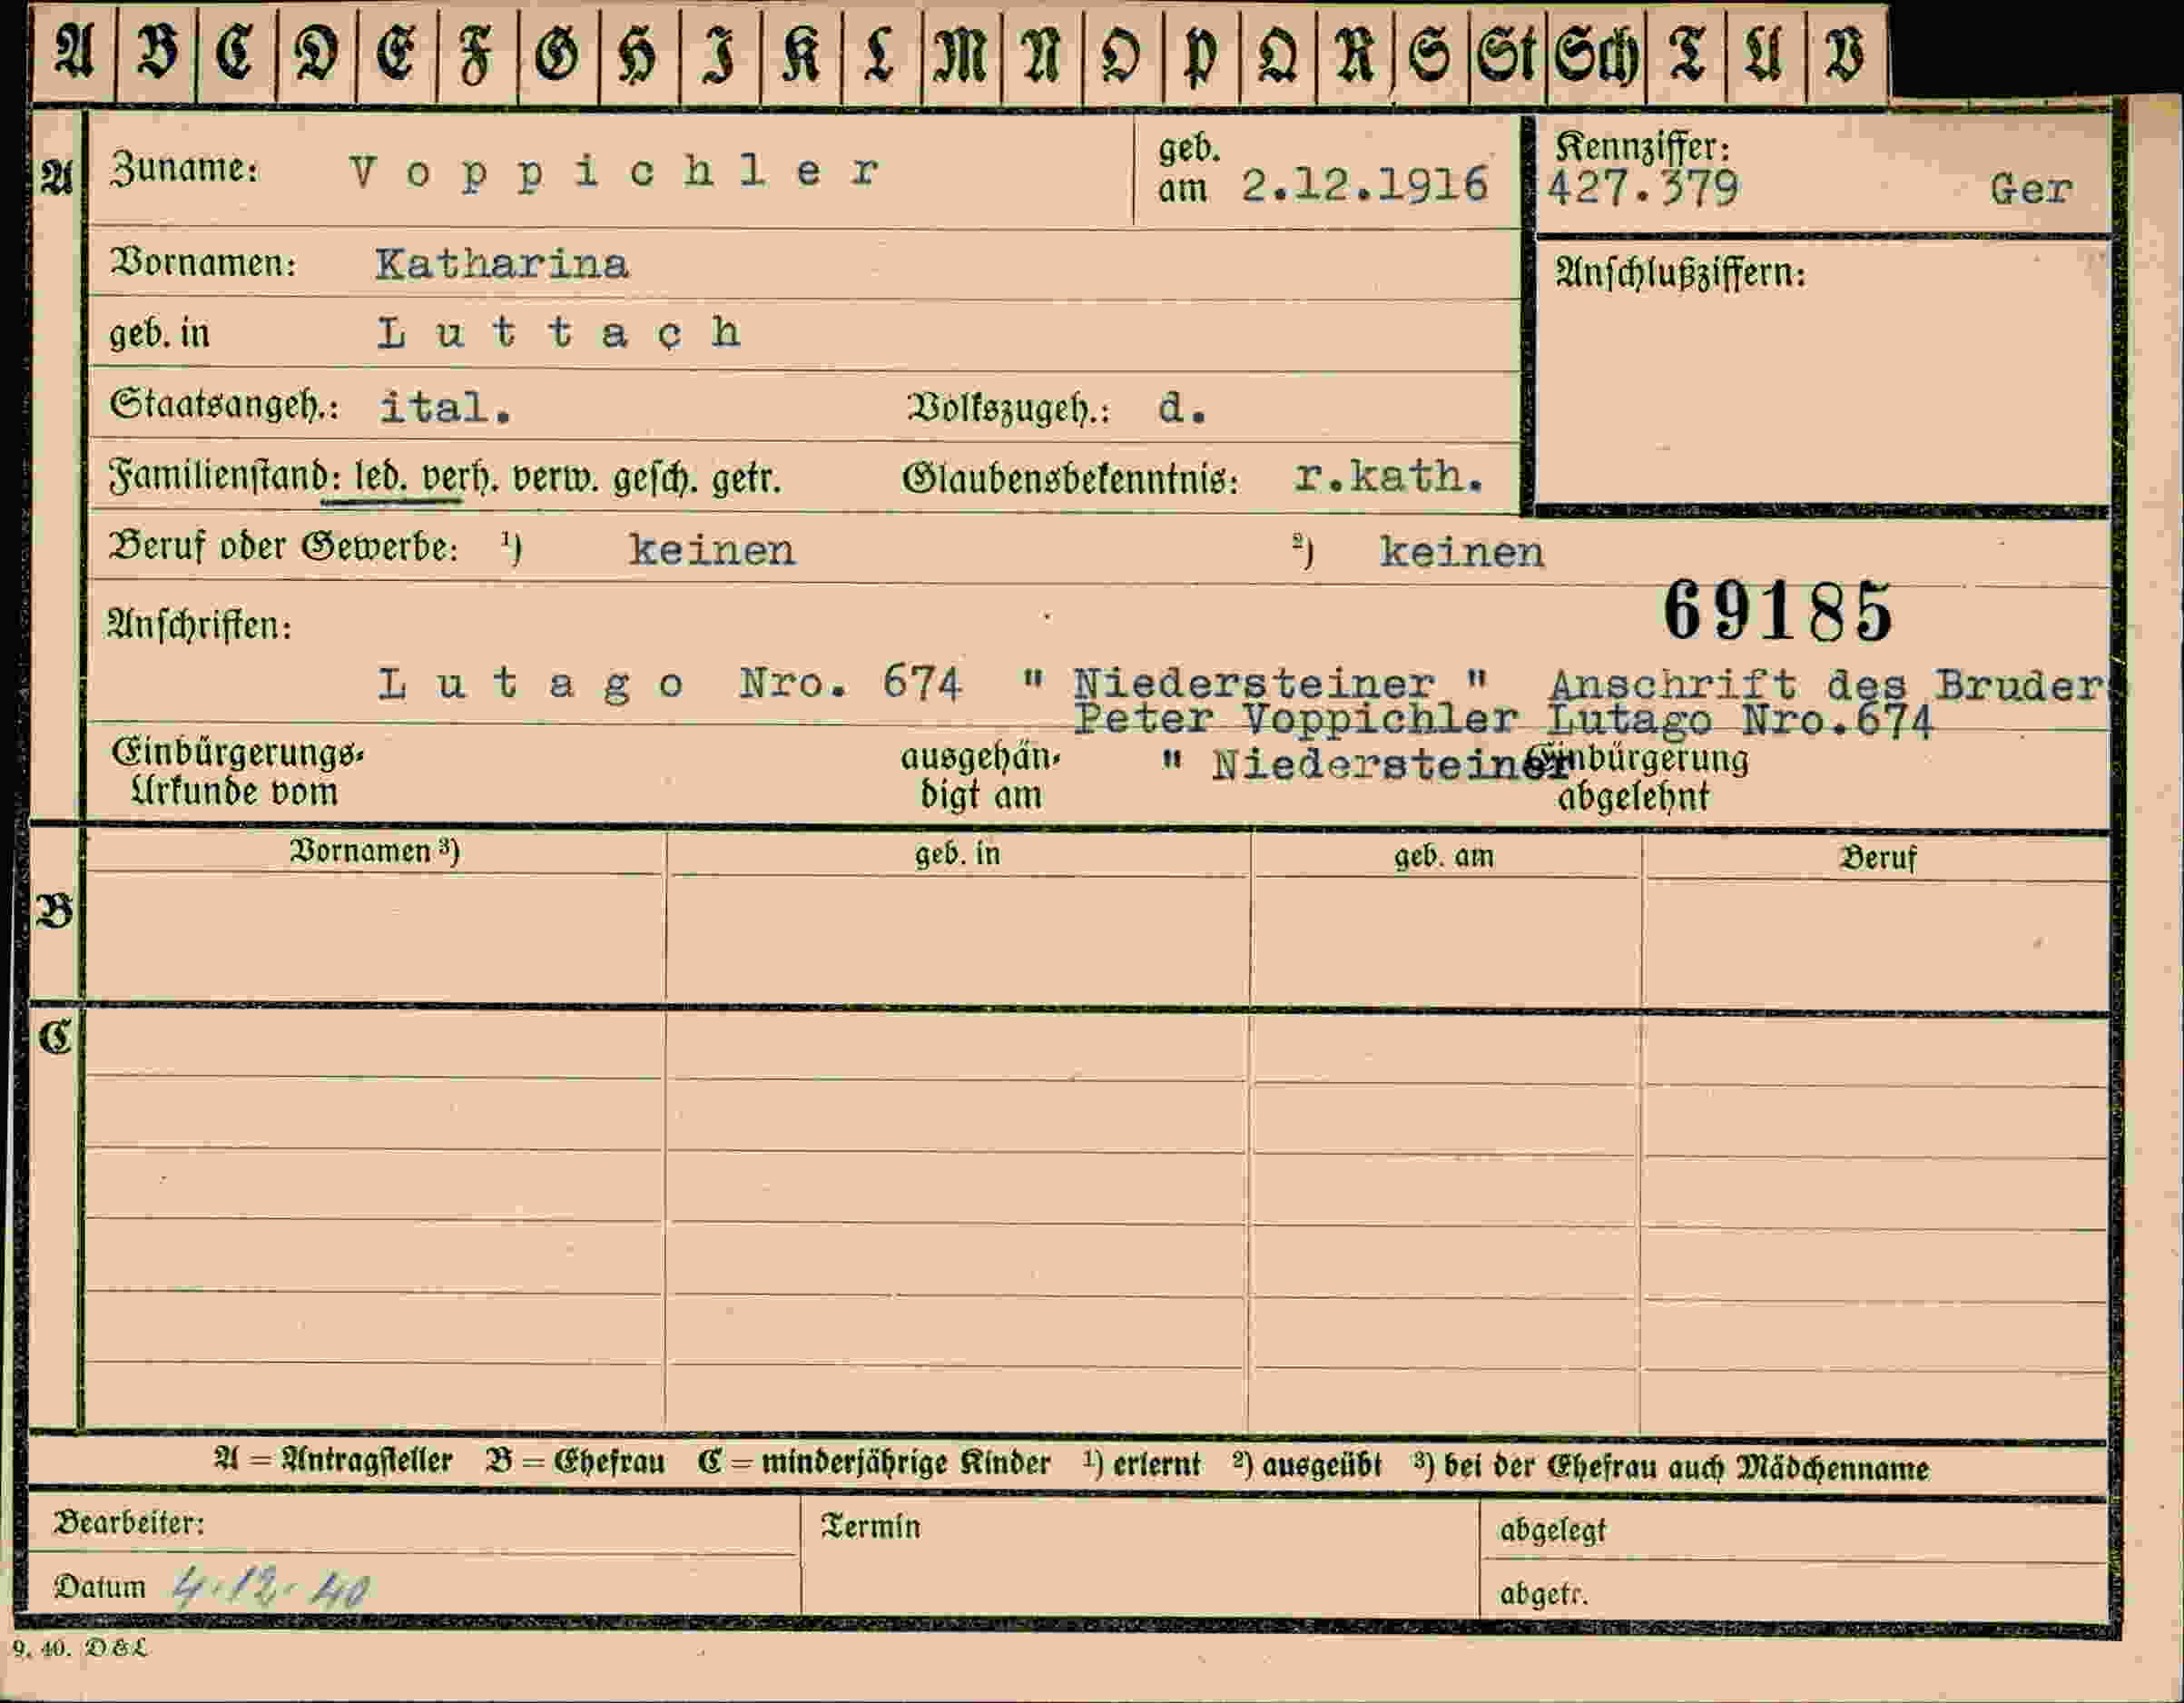 A B C D E F G H I K L M N O P Q R S St Sch T U V
A Zuname: Voppichler geb. am 2.12.1916 Kennziffer: 427.379 Ger
Vornamen: Katharina Anschlußziffern:
geb. in Luttach
Staatsangeh.: ital. Volkszugeh.: d.
Familienstand: led. verh. verw. gesch. getr. Glaubensbekenntnis: r.kath.
Beruf oder Gewerbe: ¹) keinen ²) keinen
69185
Anschriften:
Lutago Nro. 674 " Niedersteiner " Anschrift des Bruder
Peter Voppichler Lutago Nro.674
Einbürgerungs- ausgehän- " Niedersteiner Einbürgerung
Urkunde vom digt am abgelehnt
Vornamen ³) geb. in geb. am Beruf
B
C
A = Antragsteller B = Ehefrau C = minderjährige Kinder ¹) erlernt ²) ausgeübt ³) bei der Ehefrau auch Mädchenname
Bearbeiter: Termin abgelegt
Datum 4.12.40 abgetr.
9. 40. D&L